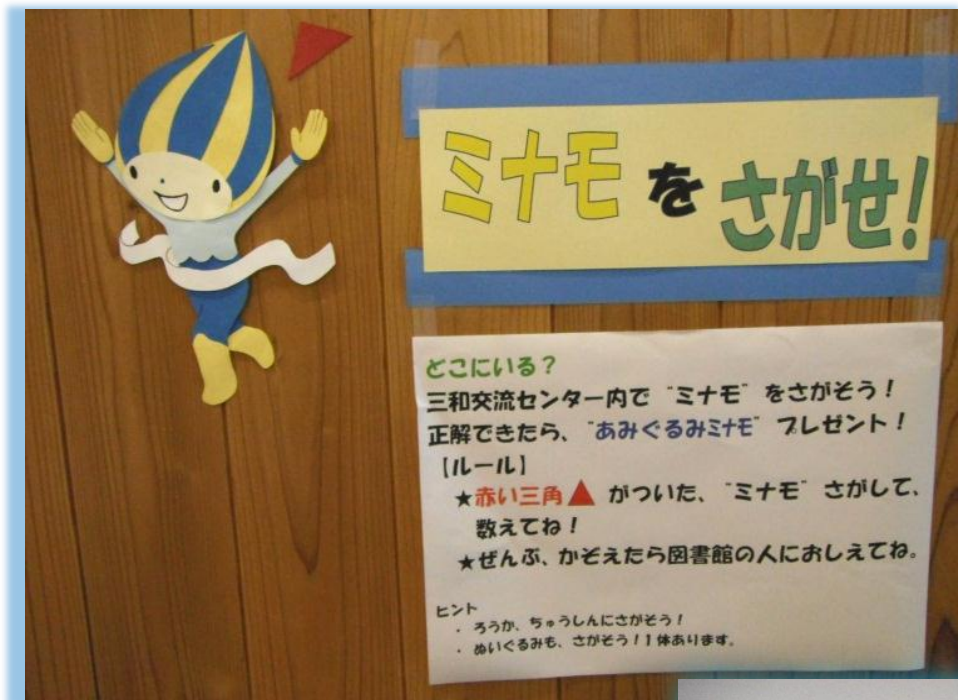 ミナモをさがせ!
どこにいる?
三和交流センター内で "ミナモ" をさがそう!
正解できたら、"あみぐるみミナモ" プレゼント!
【ルール】
★赤い三角▲ がついた、"ミナモ" さがして、
数えてね!
★ぜんぶ、かぞえたら図書館の人におしえてね。
ヒント
・ ろうか、ちゅうしんにさがそう!
・ ぬいぐるみも、さがそう!1体あります。